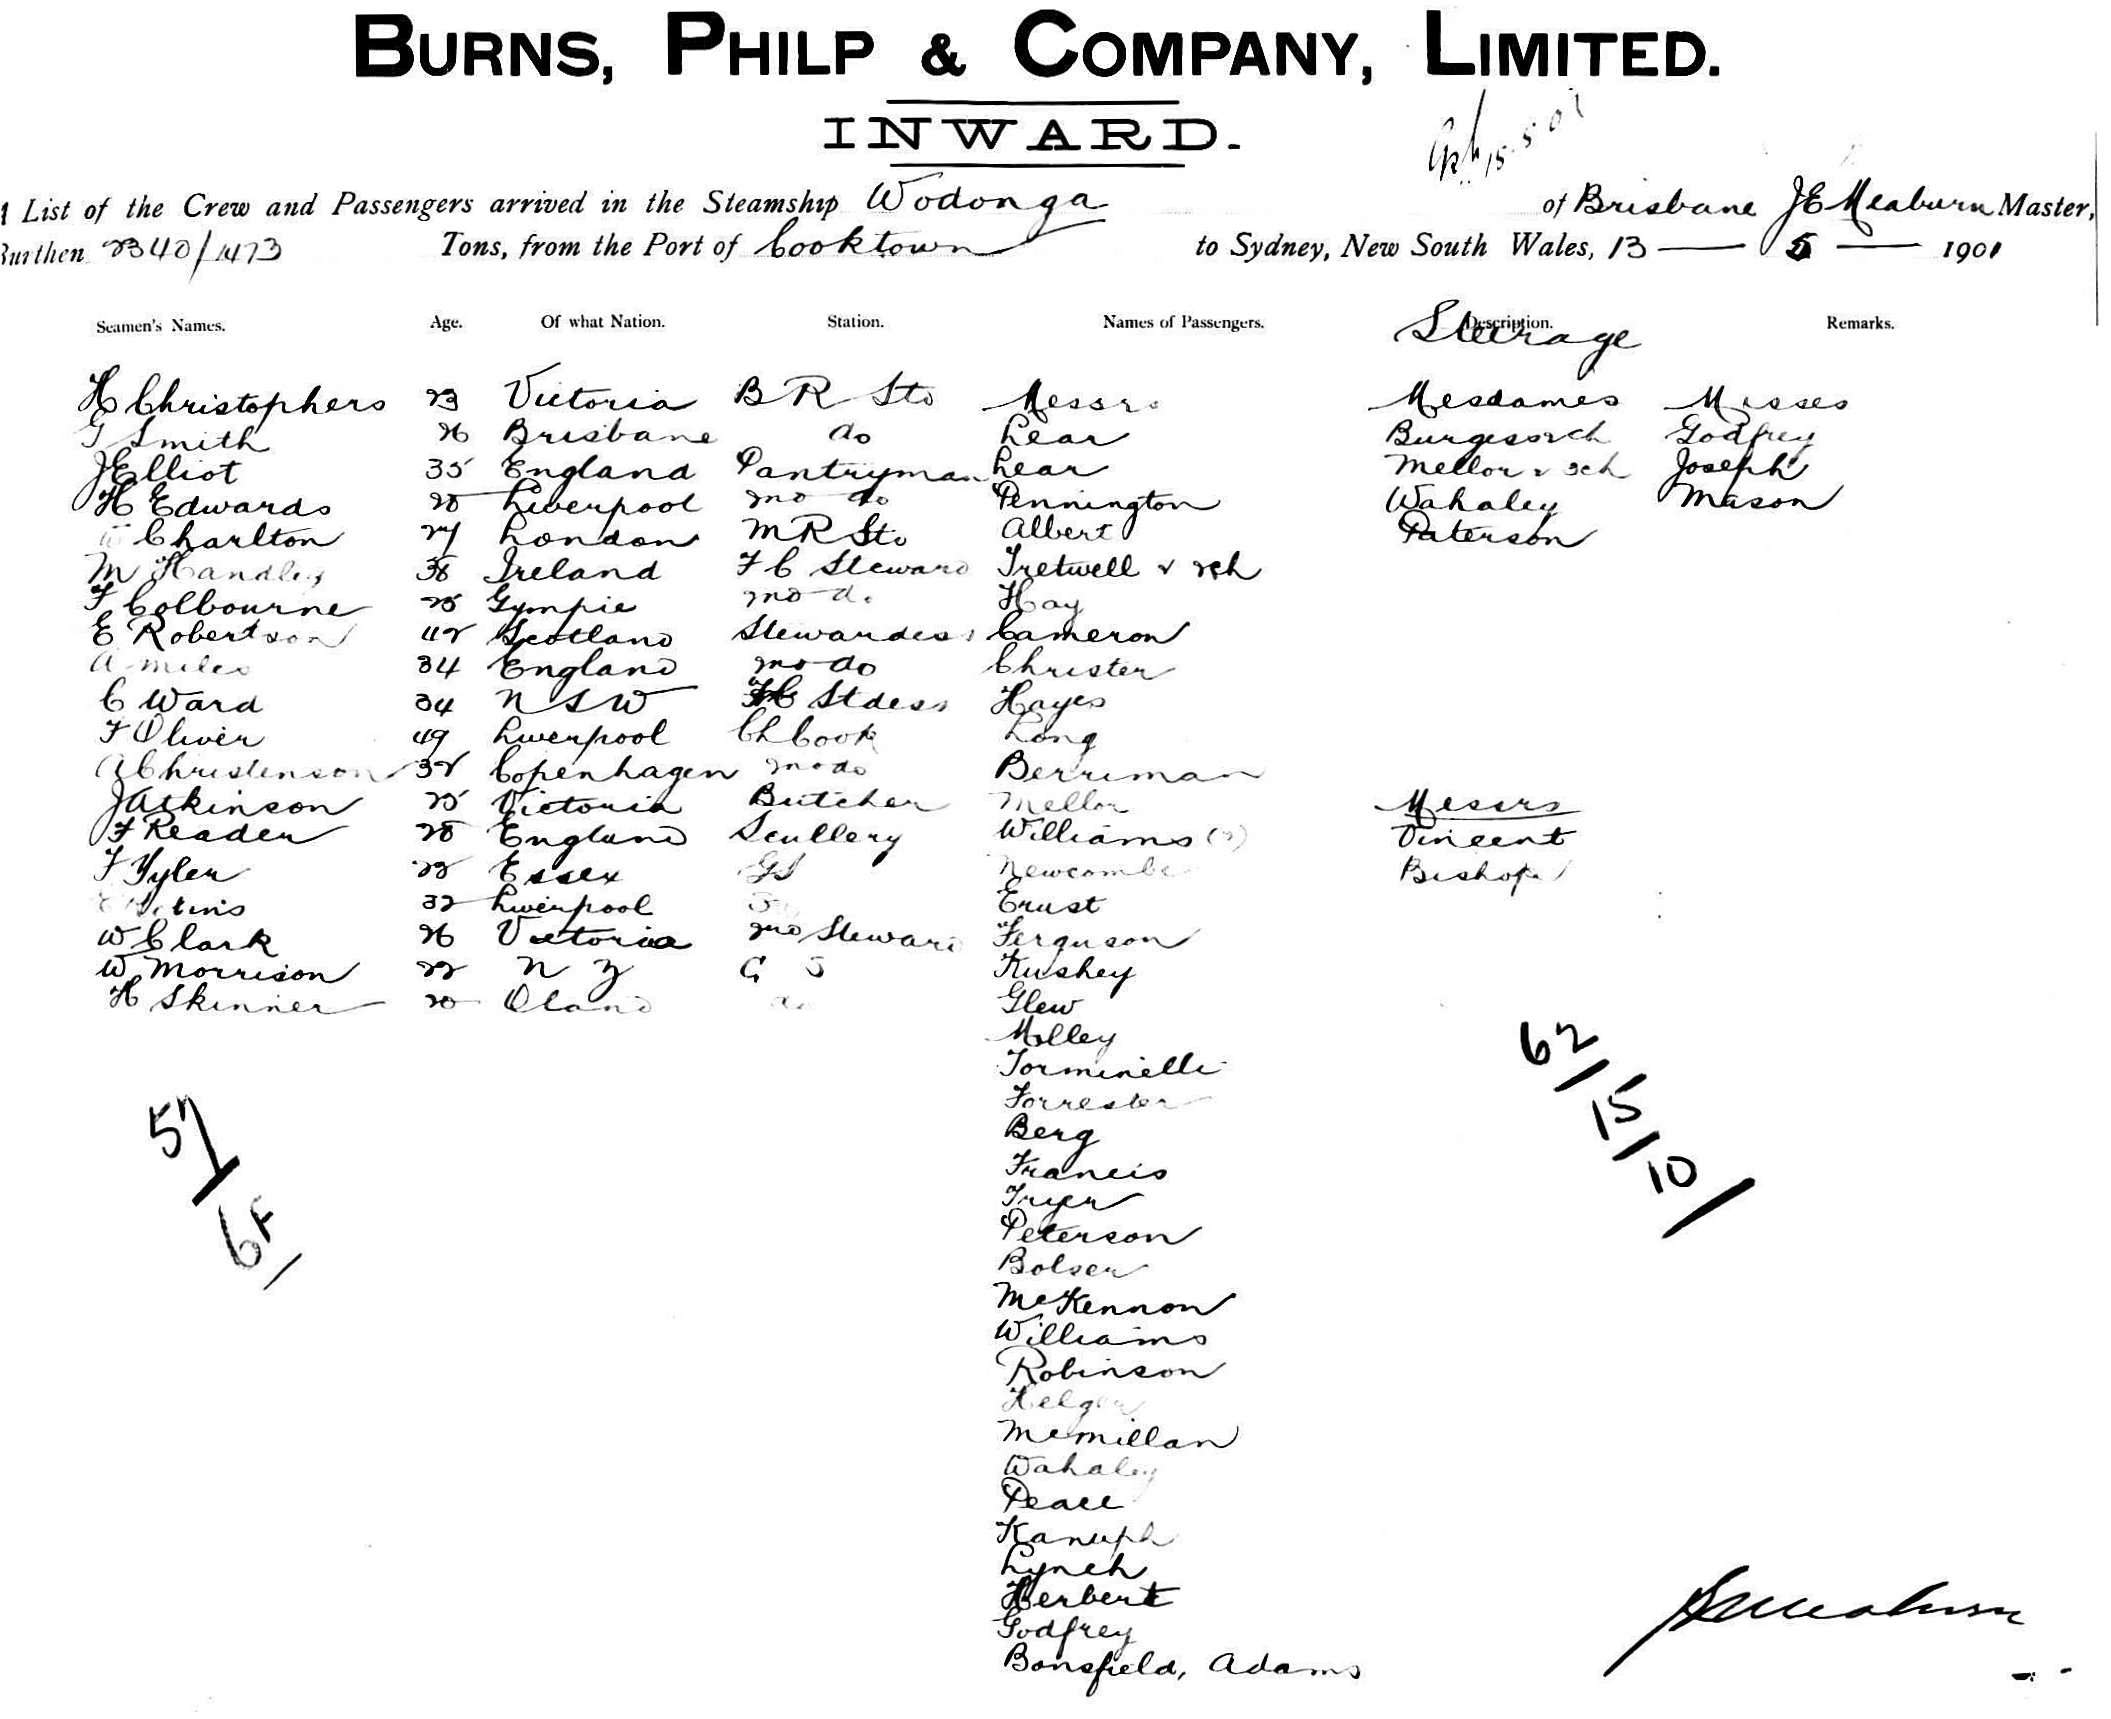 BURNS, PHILP & COMPANY, LIMITED.
INWARD.
15.5.01
List of the Crew and Passengers arrived in the Steamship Wodonga of Brisbane JE Meaburn Master,
Burthen 2340/1473 Tons, from the Port of Cooktown to Sydney, New South Wales, 13 — 5 — 1901
Seamen's Names. Age. Of what Nation. Station. Names of Passengers. Description. Remarks.
Steerage
H Christophers 23 Victoria B R Sto Messrs Mesdames Misses
G Smith 26 Brisbane do Lear Burgess Godfrey
J Elliot 35 England Pantryman Lear Mellor & 3ch Joseph
H Edwards 20 Liverpool mo do Pennington Wahaley Mason
Charlton 27 London M R Sto Albert Paterson
M Handley 38 Ireland F C Steward Tretwell & 2ch
F Colbourne 25 Gympie Hay
E Robertson 42 Scotland Stewardess Cameron
A Miles 34 England mo do Christer
C Ward 34 N S W Stdess Hayes
F Oliver 49 Liverpool Ch Cook Long
A Christenson 32 Copenhagen mo do Berriman
J Atkinson 25 Victoria Butcher Mellor Messrs
F Reader 20 England Scullery Williams (2) Vincent
F Tyler 22 Essex GS Newcombe Bishop
32 Liverpool Ernst
W Clark 26 Victoria mo Steward Ferguson
W Morrison 22 N Z G S Kushey
H Skinner 20 Oland do Glew
Molley
Torminelli
Forrester
Berg
Francis
Fryer
Peterson
Bolser
McKennon
Williams
Robinson
McMillan
Wahaley
Peace
Kanuph
Lynch
Herbert
Godfrey
Bonsfield, Adams
57/
6F/
62/15/10/